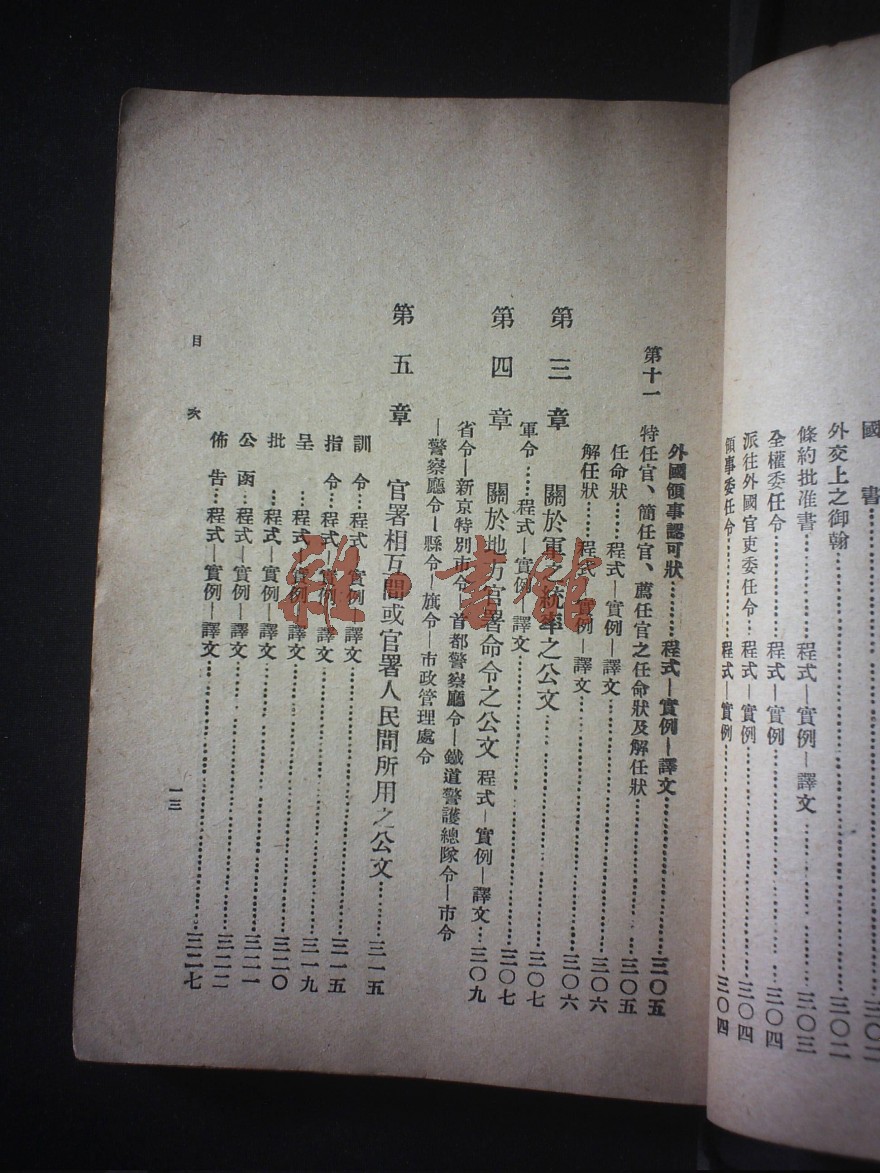 國 書……三〇二
外交上之御翰……三〇二
條約批准書……程式—實例—譯文……三〇三
全權委任令……程式—實例……三〇四
派往外國官吏委任令…程式—實例……三〇四
領事委任令……程式—實例……三〇四
外國領事認可狀……程式—實例—譯文……三〇五
第十一 特任官、簡任官、薦任官之任命狀及解任狀……三〇五
任命狀……程式—實例—譯文……三〇六
解任狀……程式—實例—譯文……三〇六
第三章 關於軍之統率之公文……三〇七
軍令……程式—實例—譯文……三〇七
第四章 關於地方官署命令之公文 程式—實例—譯文…三〇九
省令—新京特別市令—首都警察廳令—鐵道警護總隊令—市令
—警察廳令—縣令—旗令—市政管理處令
第五章 官署相互間或官署人民間所用之公文……三一五
訓令…程式—實例—譯文……三一五
指令…程式—實例—譯文……三一九
呈…程式—實例—譯文……三二〇
批…程式—實例—譯文……三二一
公函…程式—實例—譯文……三二二
佈告…程式—實例—譯文……三二七
目 次
一三
雜·書館